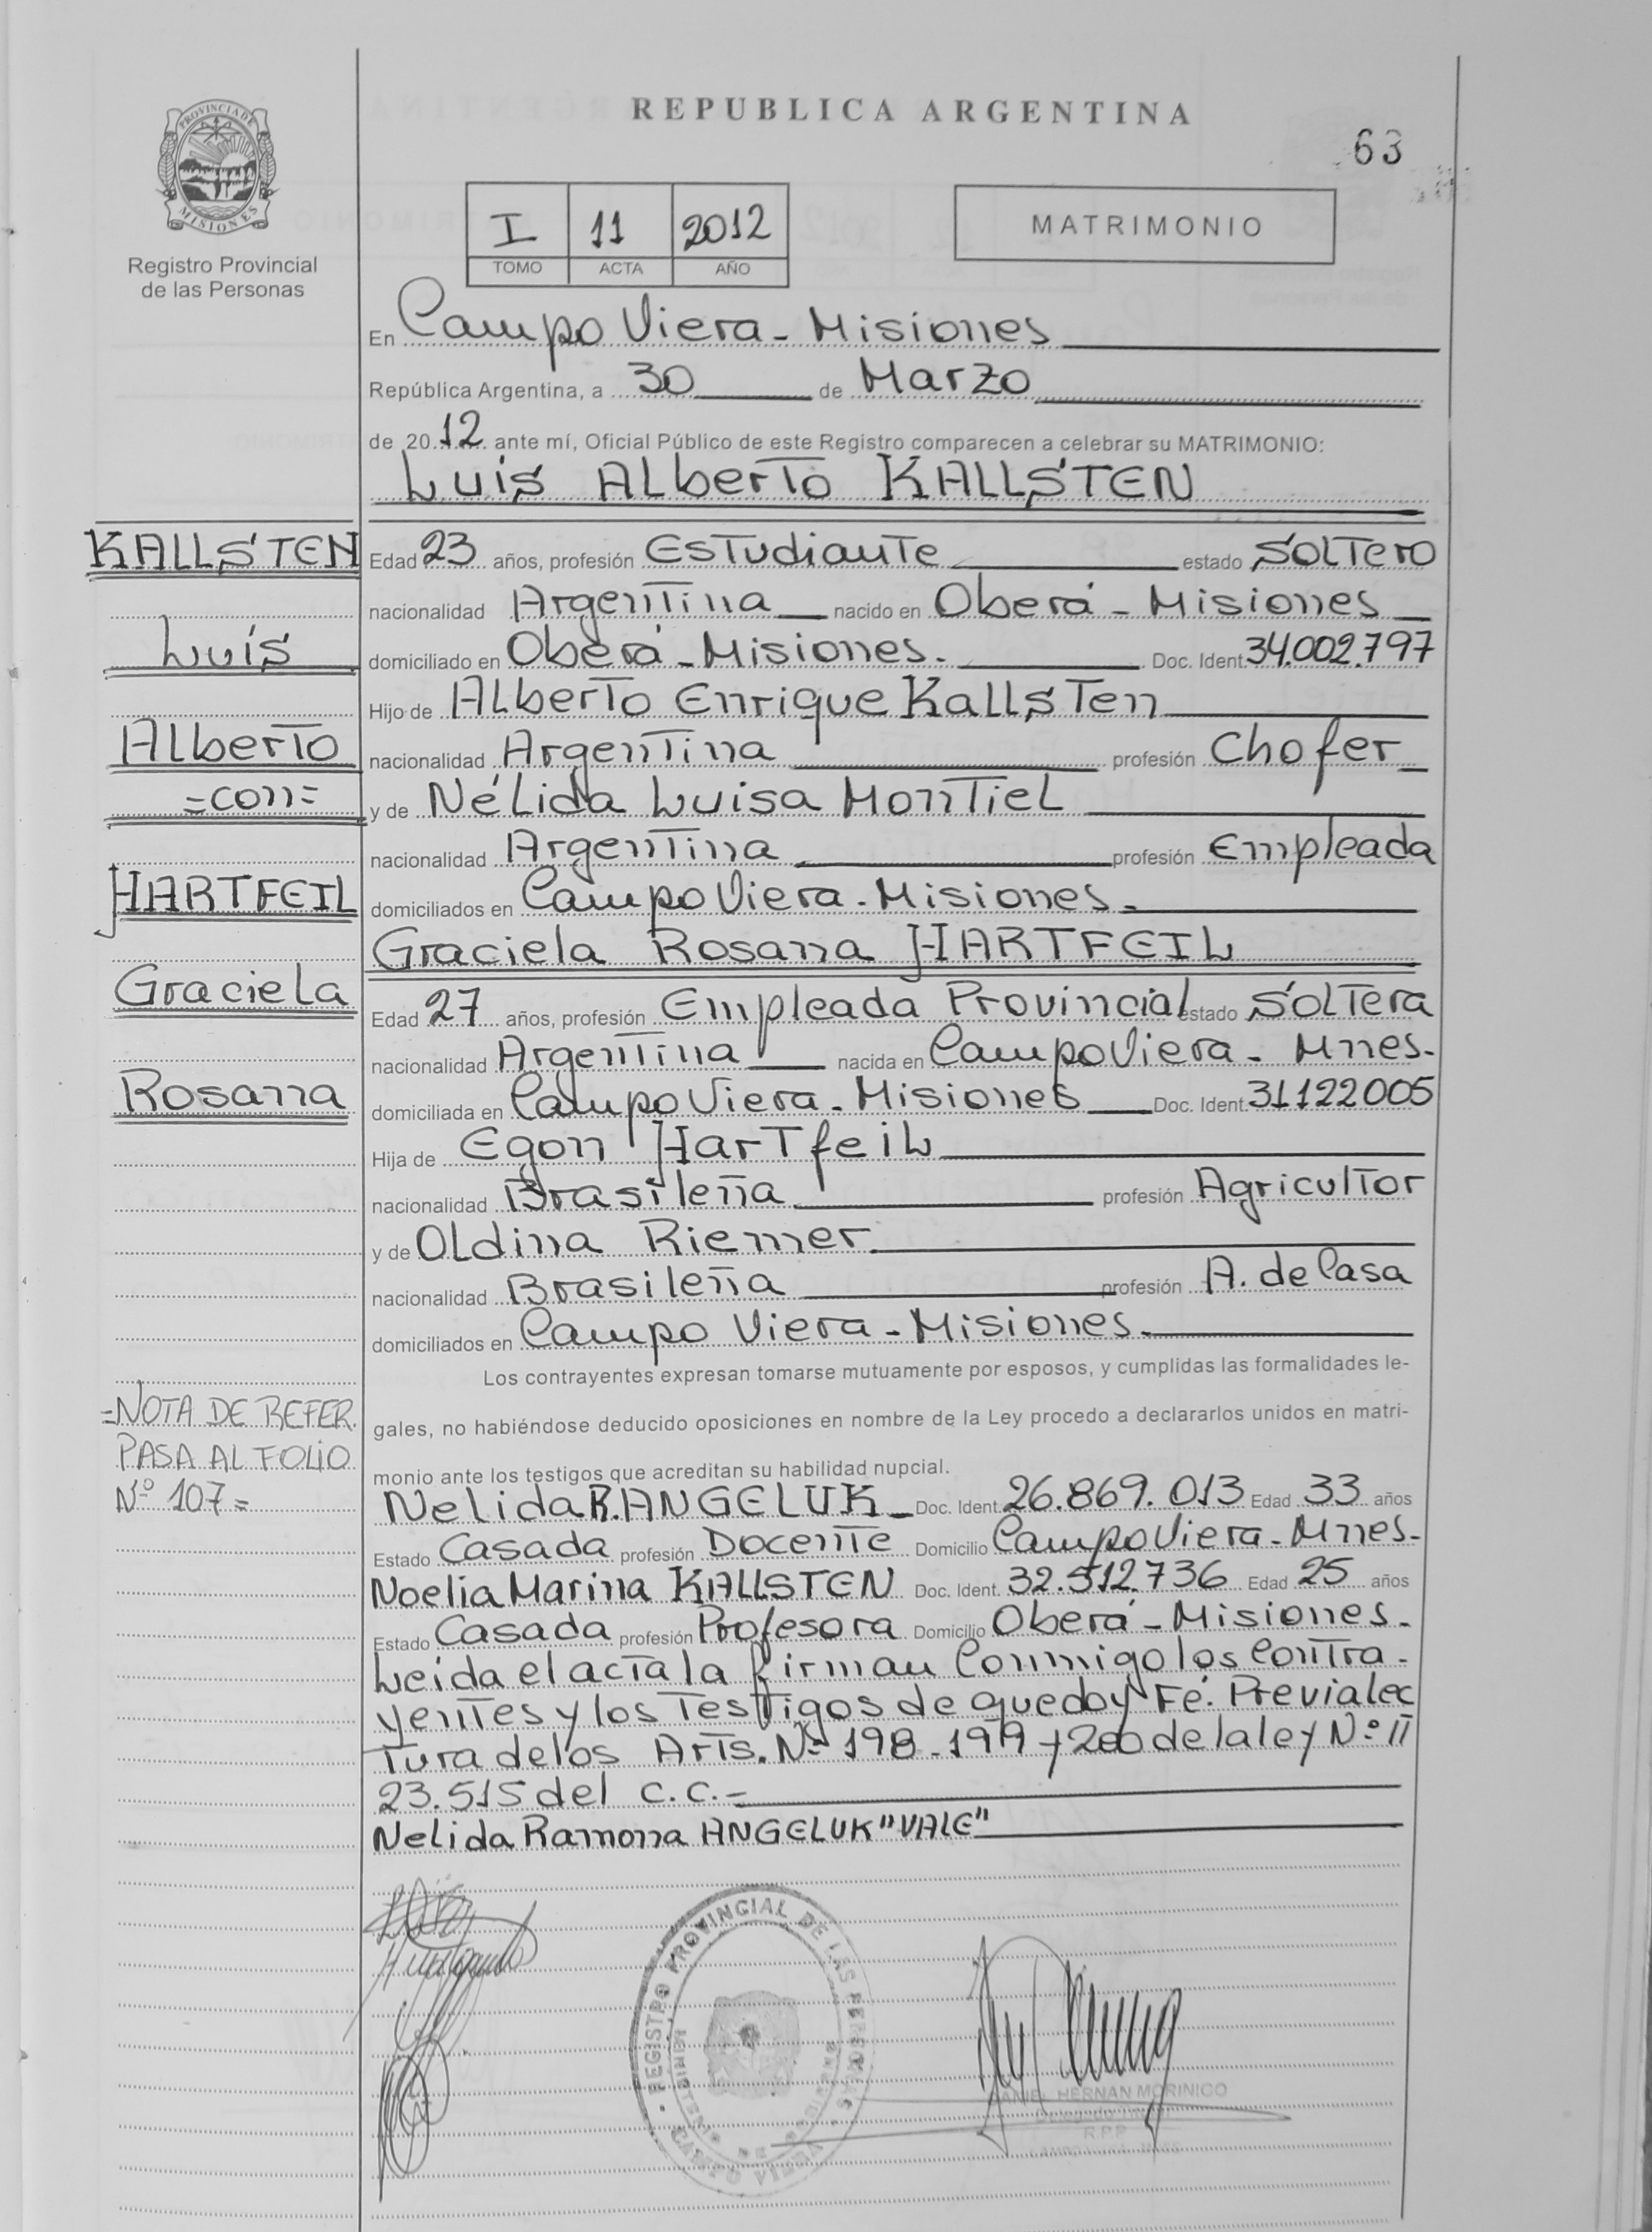 REPUBLICA ARGENTINA
63
PROVINCIA DE MISIONES
Registro Provincial
de las Personas
I 11 2012
TOMO ACTA AÑO
MATRIMONIO
En Campo Viera - Misiones
República Argentina, a 30 de Marzo
de 2012 ante mí, Oficial Público de este Registro comparecen a celebrar su MATRIMONIO:
Luis Alberto KALLSTEN
KALLSTEN
Luis
Alberto
=con=
HARTFEIL
Graciela
Rosana
Edad 23 años, profesión Estudiante estado Soltero
nacionalidad Argentina nacido en Oberá - Misiones
domiciliado en Oberá - Misiones. Doc. Ident. 34.002.797
Hijo de Alberto Enrique Kallsten
nacionalidad Argentina profesión Chofer
y de Nélida Luisa Montiel
nacionalidad Argentina profesión Empleada
domiciliados en Campo Viera - Misiones.
Graciela Rosana HARTFEIL
Edad 27 años, profesión Empleada Provincial estado Soltera
nacionalidad Argentina nacida en Campo Viera - Mnes.
domiciliada en Campo Viera - Misiones Doc. Ident. 31122005
Hija de Egon Hartfeil
nacionalidad Brasileña profesión Agricultor
y de Oldina Riemer
nacionalidad Brasileña profesión A. de Casa
domiciliados en Campo Viera - Misiones.
Los contrayentes expresan tomarse mutuamente por esposos, y cumplidas las formalidades le-
gales, no habiéndose deducido oposiciones en nombre de la Ley procedo a declararlos unidos en matri-
monio ante los testigos que acreditan su habilidad nupcial.
=NOTA DE REFER.
PASA AL FOLIO
Nº 107=
Nelida R. ANGELUK Doc. Ident. 26.869.013 Edad 33 años
Estado Casada profesión Docente Domicilio Campo Viera - Mnes.
Noelia Marina KALLSTEN Doc. Ident. 32.512.736 Edad 25 años
Estado Casada profesión Profesora Domicilio Oberá - Misiones.
Leida el acta la firman Conmigo los Contra-
yentes y los Testigos de que doy Fé. Previa lec
tura de los Arts. Nº 198 - 199 y 200 de la ley Nº 11
23.515 del C.C.=
Nelida Ramona ANGELUK "VALE"
REGISTRO PROVINCIAL DE LAS PERSONAS
CAMPO VIERA
DANIEL HERNAN MORINIGO
R.P.P.